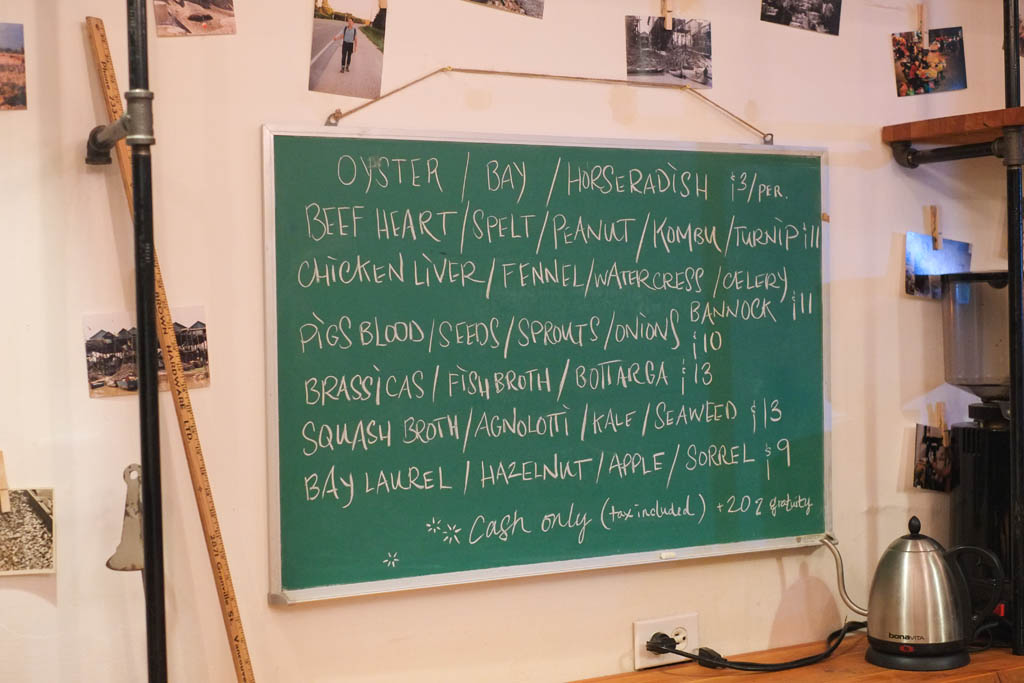 OYSTER / BAY / HORSERADISH $3/PER.
BEEF HEART/SPELT/PEANUT/KOMBU/TURNIP $11
CHICKEN LIVER/FENNEL/WATERCRESS/CELERY,
BANNOCK $11
PIGS BLOOD/SEEDS/SPROUTS/ONIONS $10
BRASSICAS/FISH BROTH/BOTTARGA $13
SQUASH BROTH/AGNOLOTTI/KALE/SEAWEED $13
BAY LAUREL/HAZELNUT/APPLE/SORREL $9
Cash only (tax included) +20% gratuity
BROWN HARDWARE LTD.
3371 Granville St. Vancouver
bonaVITA